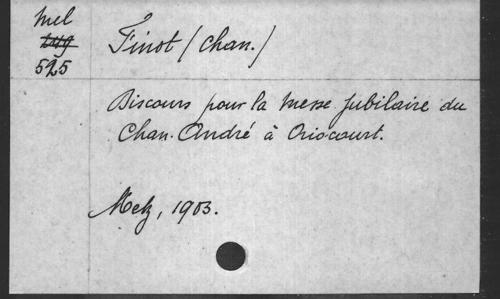 Mel
525
Finot (Chan.)
Discours pour la Messe Jubilaire du
Chan. André à Oriocourt.
Metz, 1903.